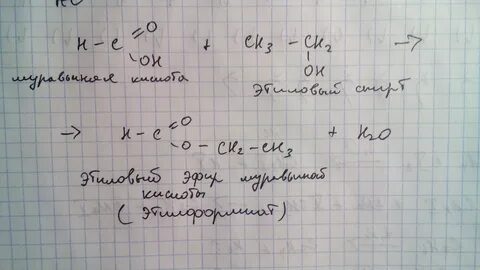 H - C = O
OH + CH3 - CH2 →
OH
муравьиная кислота
этиловый спирт
→ H - C = O
O - CH2 - CH3 + H2O
этиловый эфир муравьиной
кислоты
(этилформиат)